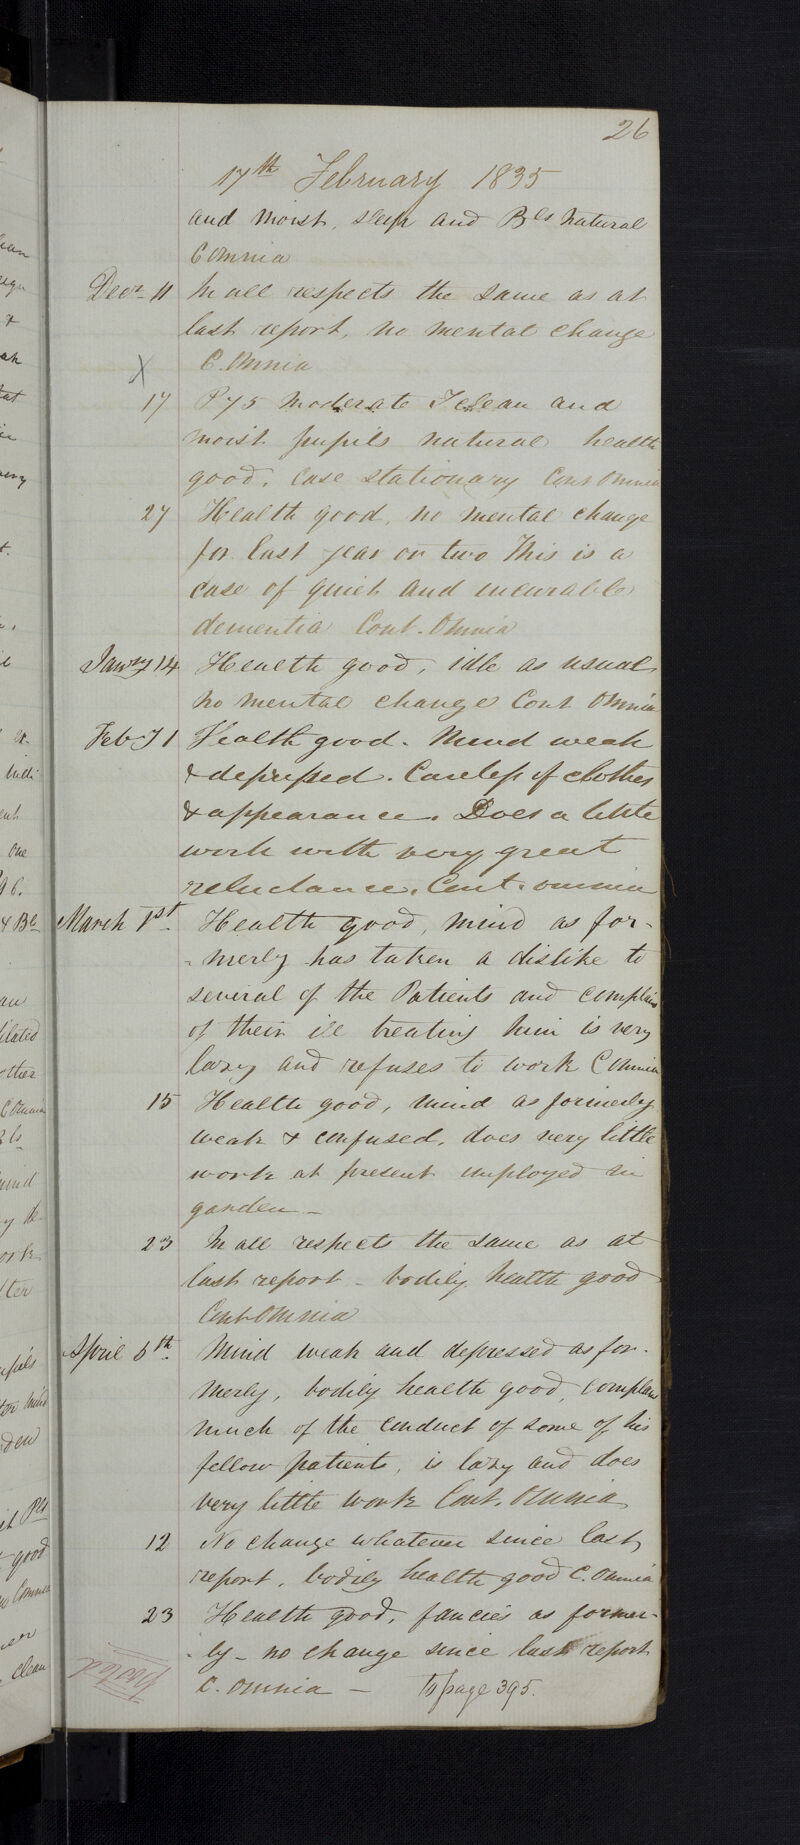 26
17th February 1835
and moist, sleep and Bls natural
C Omnia
Decr 11 In all respects the same as at
last report, no mental change
X C. Omnia
17 P 75 moderate T clean and
moist pupils natural health
good. Case stationary Cont Omnia
27 Health good, no mental change
for last year or two This is a
case of quiet and incurable
dementia Cont. Omnia
Jany 14 Health good, idle as usual,
no mental change Cont Omnia
Feby 1 Health good. Mind weak
& depressed. Careless of clothes
& appearance. Does a little
work with very great
reluctance. Cont. omnia
March 1st Health good, mind as for-
-merly has taken a dislike to
several of the Patients and complains
of their ill treating him is very
lazy and refuses to work C Omnia
15 Health good, mind as formerly
weak & confused, does very little
work at present employed in
garden –
23 In all respects the same as at
last report – bodily health good
Cont Omnia
April 5th Mind weak and depressed as for-
merly, bodily health good, complains
much of the conduct of some of his
fellow patients, is lazy and does
very little work Cont. Omnia
12 No change whatever since last
report, bodily health good C. Omnia
23 Health good, fancies as former-
-ly – no change since last report
C. Omnia – To page 395.